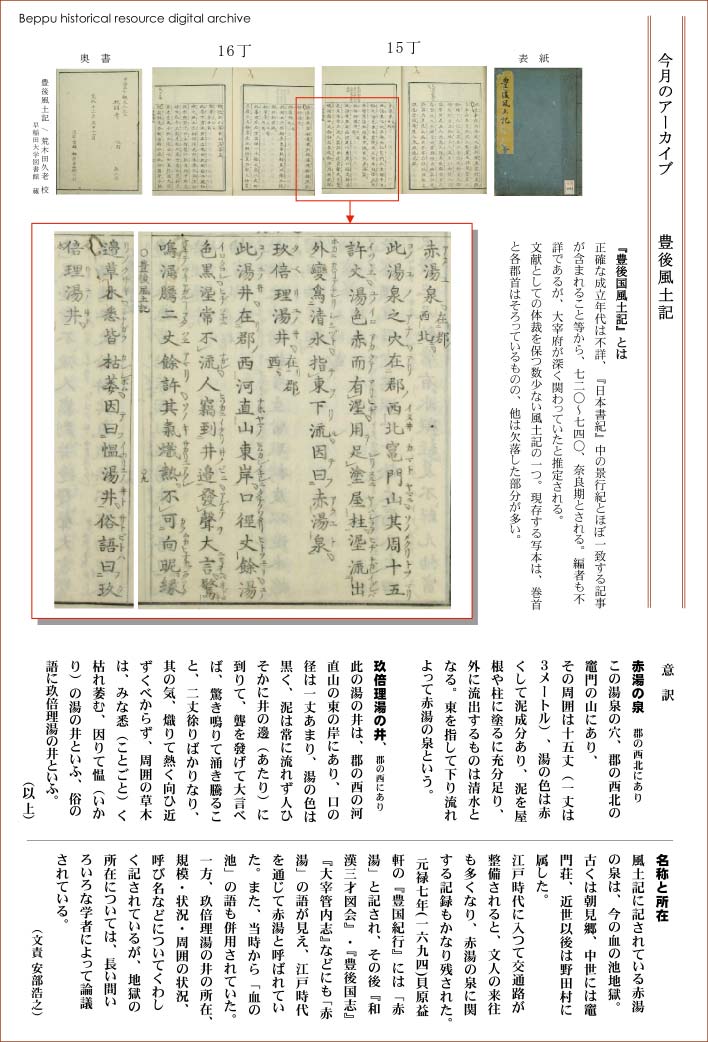 Beppu historical resource digital archive
今月のアーカイブ　豊後風土記
表紙
15丁
16丁
奥書
豊後風土記
豊後風土記 ／ 荒木田久老 校
早稲田大学図書館 蔵
『豊後国風土記』とは
正確な成立年代は不詳、『日本書紀』中の景行紀とほぼ一致する記事
が含まれること等から、七二〇～七四〇、奈良期とされる。編者も不
詳であるが、大宰府が深く関わっていたと推定される。
文献としての体裁を保つ数少ない風土記の一つ。現存する写本は、巻首
と各郡首はそろっているものの、他は欠落した部分が多い。
赤湯泉 在郡西北
此湯泉之穴在郡西北竈門山其周十五
許丈湯色赤而有埿用足塗屋柱埿流出
外變爲清水指東下流因曰赤湯泉
玖倍理湯井 在郡西
此湯井在郡西河直山東岸口徑丈餘湯
色黒埿常不流人竊到井邊發聲大言驚
鳴涌騰二丈餘許其氣熾熱不可向昵縁
〇豊後風土記
邊草木悉皆枯萎因曰慍湯井俗語曰玖
倍理湯井
意訳
赤湯の泉　郡の西北にあり
この湯泉の穴、郡の西北の
竈門の山にあり、
その周囲は十五丈（一丈は
3メートル）、湯の色は赤
くして泥成分あり、泥を屋
根や柱に塗るに充分足り、
外に流出するものは清水と
なる。東を指して下り流れ
よって赤湯の泉という。
玖倍理湯の井、郡の西にあり
此の湯の井は、郡の西の河
直山の東の岸にあり、口の
径は一丈あまり、湯の色は
黒く、泥は常に流れず人ひ
そかに井の邊（あたり）に
到りて、聲を發げて大言べ
ば、驚き鳴りて涌き騰るこ
と、二丈徐りばかりなり、
其の気、熾りて熱く向ひ近
ずくべからず、周囲の草木
は、みな悉（ことごと）く
枯れ萎む、因りて慍（いか
り）の湯の井といふ、俗の
語に玖倍理湯の井といふ。
（以上）
名称と所在
風土記に記されている赤湯
の泉は、今の血の池地獄。
古くは朝見郷、中世には竈
門荘、近世以後は野田村に
属した。
江戸時代に入つて交通路が
整備されると、文人の来往
も多くなり、赤湯の泉に関
する記録もかなり残された。
元禄七年(一六九四)貝原益
軒の『豊国紀行』には「赤
湯」と記され、その後『和
漢三才図会』・『豊後国志』
『大宰管内志』などにも「赤
湯」の語が見え、江戸時代
を通じて赤湯と呼ばれてい
た。また、当時から「血の
池」の語も併用されていた。
一方、玖倍理湯の井の所在、
規模・状況・周囲の状況、
呼び名などについてくわし
く記されているが、地獄の
所在については、長い間い
ろいろな学者によって論議
されている。
（文責 安部浩之）